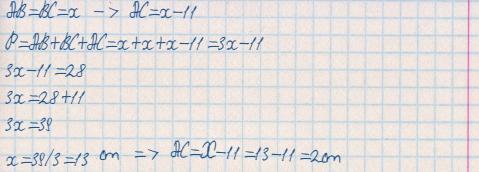 AB=BC=x -> AC=x-11
P=AB+BC+AC=x+x+x-11=3x-11
3x-11=28
3x=28+11
3x=39
x=39/3=13 cm => AC=X-11=13-11=2cm